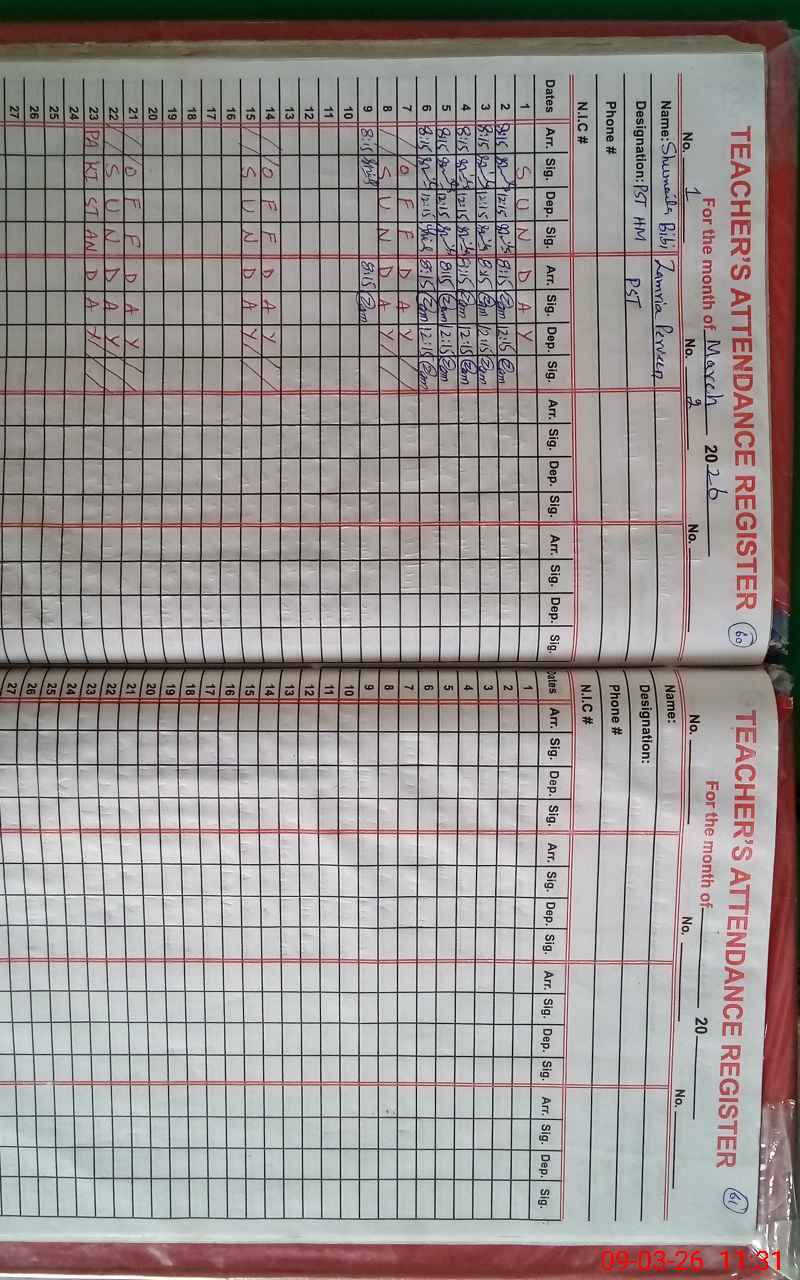 TEACHER'S ATTENDANCE REGISTER 60
For the month of March 2026
No. 1 No. 2 No.
Name: Shumaila Bibi Zamria Perveen
Designation: PST HM PST
Phone #
N.I.C #
Dates Arr. Sig. Dep. Sig. Arr. Sig. Dep. Sig. Arr. Sig. Dep. Sig. Arr. Sig. Dep. Sig.
1 S U N D A Y
2 8:15 12:15 8:15 12:15
3 8:15 12:15 8:15 12:15
4 8:15 12:15 8:15 12:15
5 8:15 12:15 8:15 12:15
6 8:15 12:15 8:15 12:15
7 O F F D A Y
8 S U N D A Y
9 8:15 8:15
10
11
12
13
14 O F F D A Y
15 S U N D A Y
16
17
18
19
20
21 O F F D A Y
22 S U N D A Y
23 PA KI ST AN D A Y
24
25
26
27
TEACHER'S ATTENDANCE REGISTER 61
For the month of 20
No. No. No.
Name:
Designation:
Phone #
N.I.C #
Dates Arr. Sig. Dep. Sig. Arr. Sig. Dep. Sig. Arr. Sig. Dep. Sig. Arr. Sig. Dep. Sig.
1
2
3
4
5
6
7
8
9
10
11
12
13
14
15
16
17
18
19
20
21
22
23
24
25
26
27
09-03-26 11:31